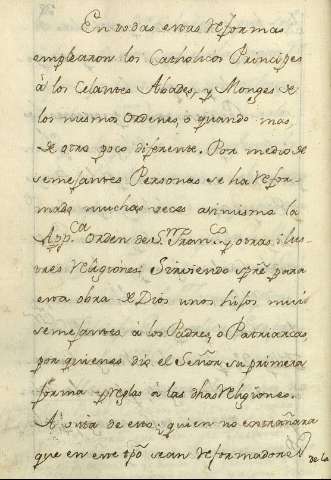 En todas estas reformas
emplearon los Catholicos Principes
à los Celantes Abades, y Monges de
los mismos Ordenes, o quando mas
de otro poco diferente. Por medio de
semejantes Personas se ha refor-
mado muchas veces asimismo la
App.ca Orden de S. Fran.co y otras ilus-
tres religiones: Sirviendo spre para
esta obra de Dios unos hijos mui
semejantes a los Padres, ò Patriarcas
por quienes dio el Señor su primera
forma y reglas à las dhas religiones.
A vista de esto, quien no estrañara
que en este tpo sean reformadores
de la